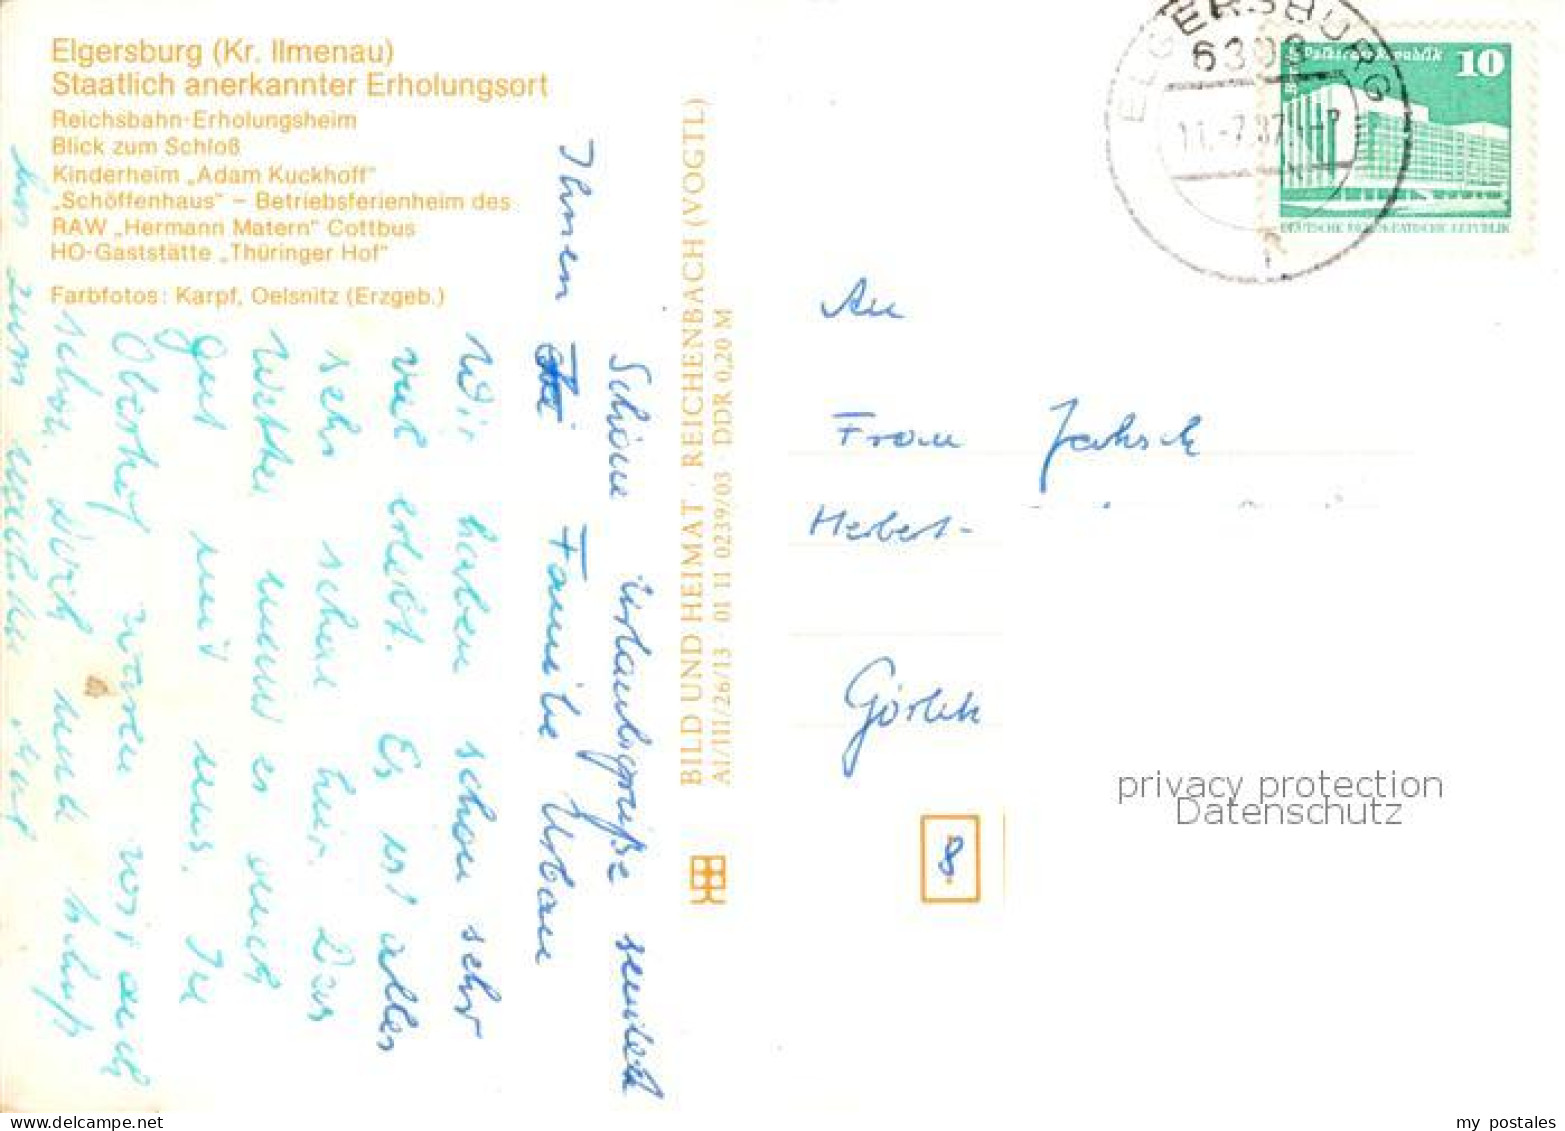 Elgersburg (Kr. Ilmenau)
Staatlich anerkannter Erholungsort
Reichsbahn-Erholungsheim
Blick zum Schloß
Kinderheim „Adam Kuckhoff“
„Schöffenhaus“ – Betriebsferienheim des
RAW „Hermann Matern“ Cottbus
HO-Gaststätte „Thüringer Hof“
Farbfotos: Karpf, Oelsnitz (Erzgeb.)
Schöne Urlaubsgrüße sendet
Ihnen Familie Urban
Wir haben schon sehr
viel erlebt. Es ist alles
sehr schön hier. Das
Wetter meint es auch
gut mit uns. In
Oberhof waren wir auch
schon. Durch
bis zum
BILD UND HEIMAT · REICHENBACH (VOGTL)
A1/III/26/13 01 11 0239/03 DDR 0,20 M
ELGERSBURG
11.-7.87
10
DEUTSCHE DEMOKRATISCHE REPUBLIK
An
Frau Jaksch
Herbert-
Görlitz
8
privacy protection
Datenschutz
my postales